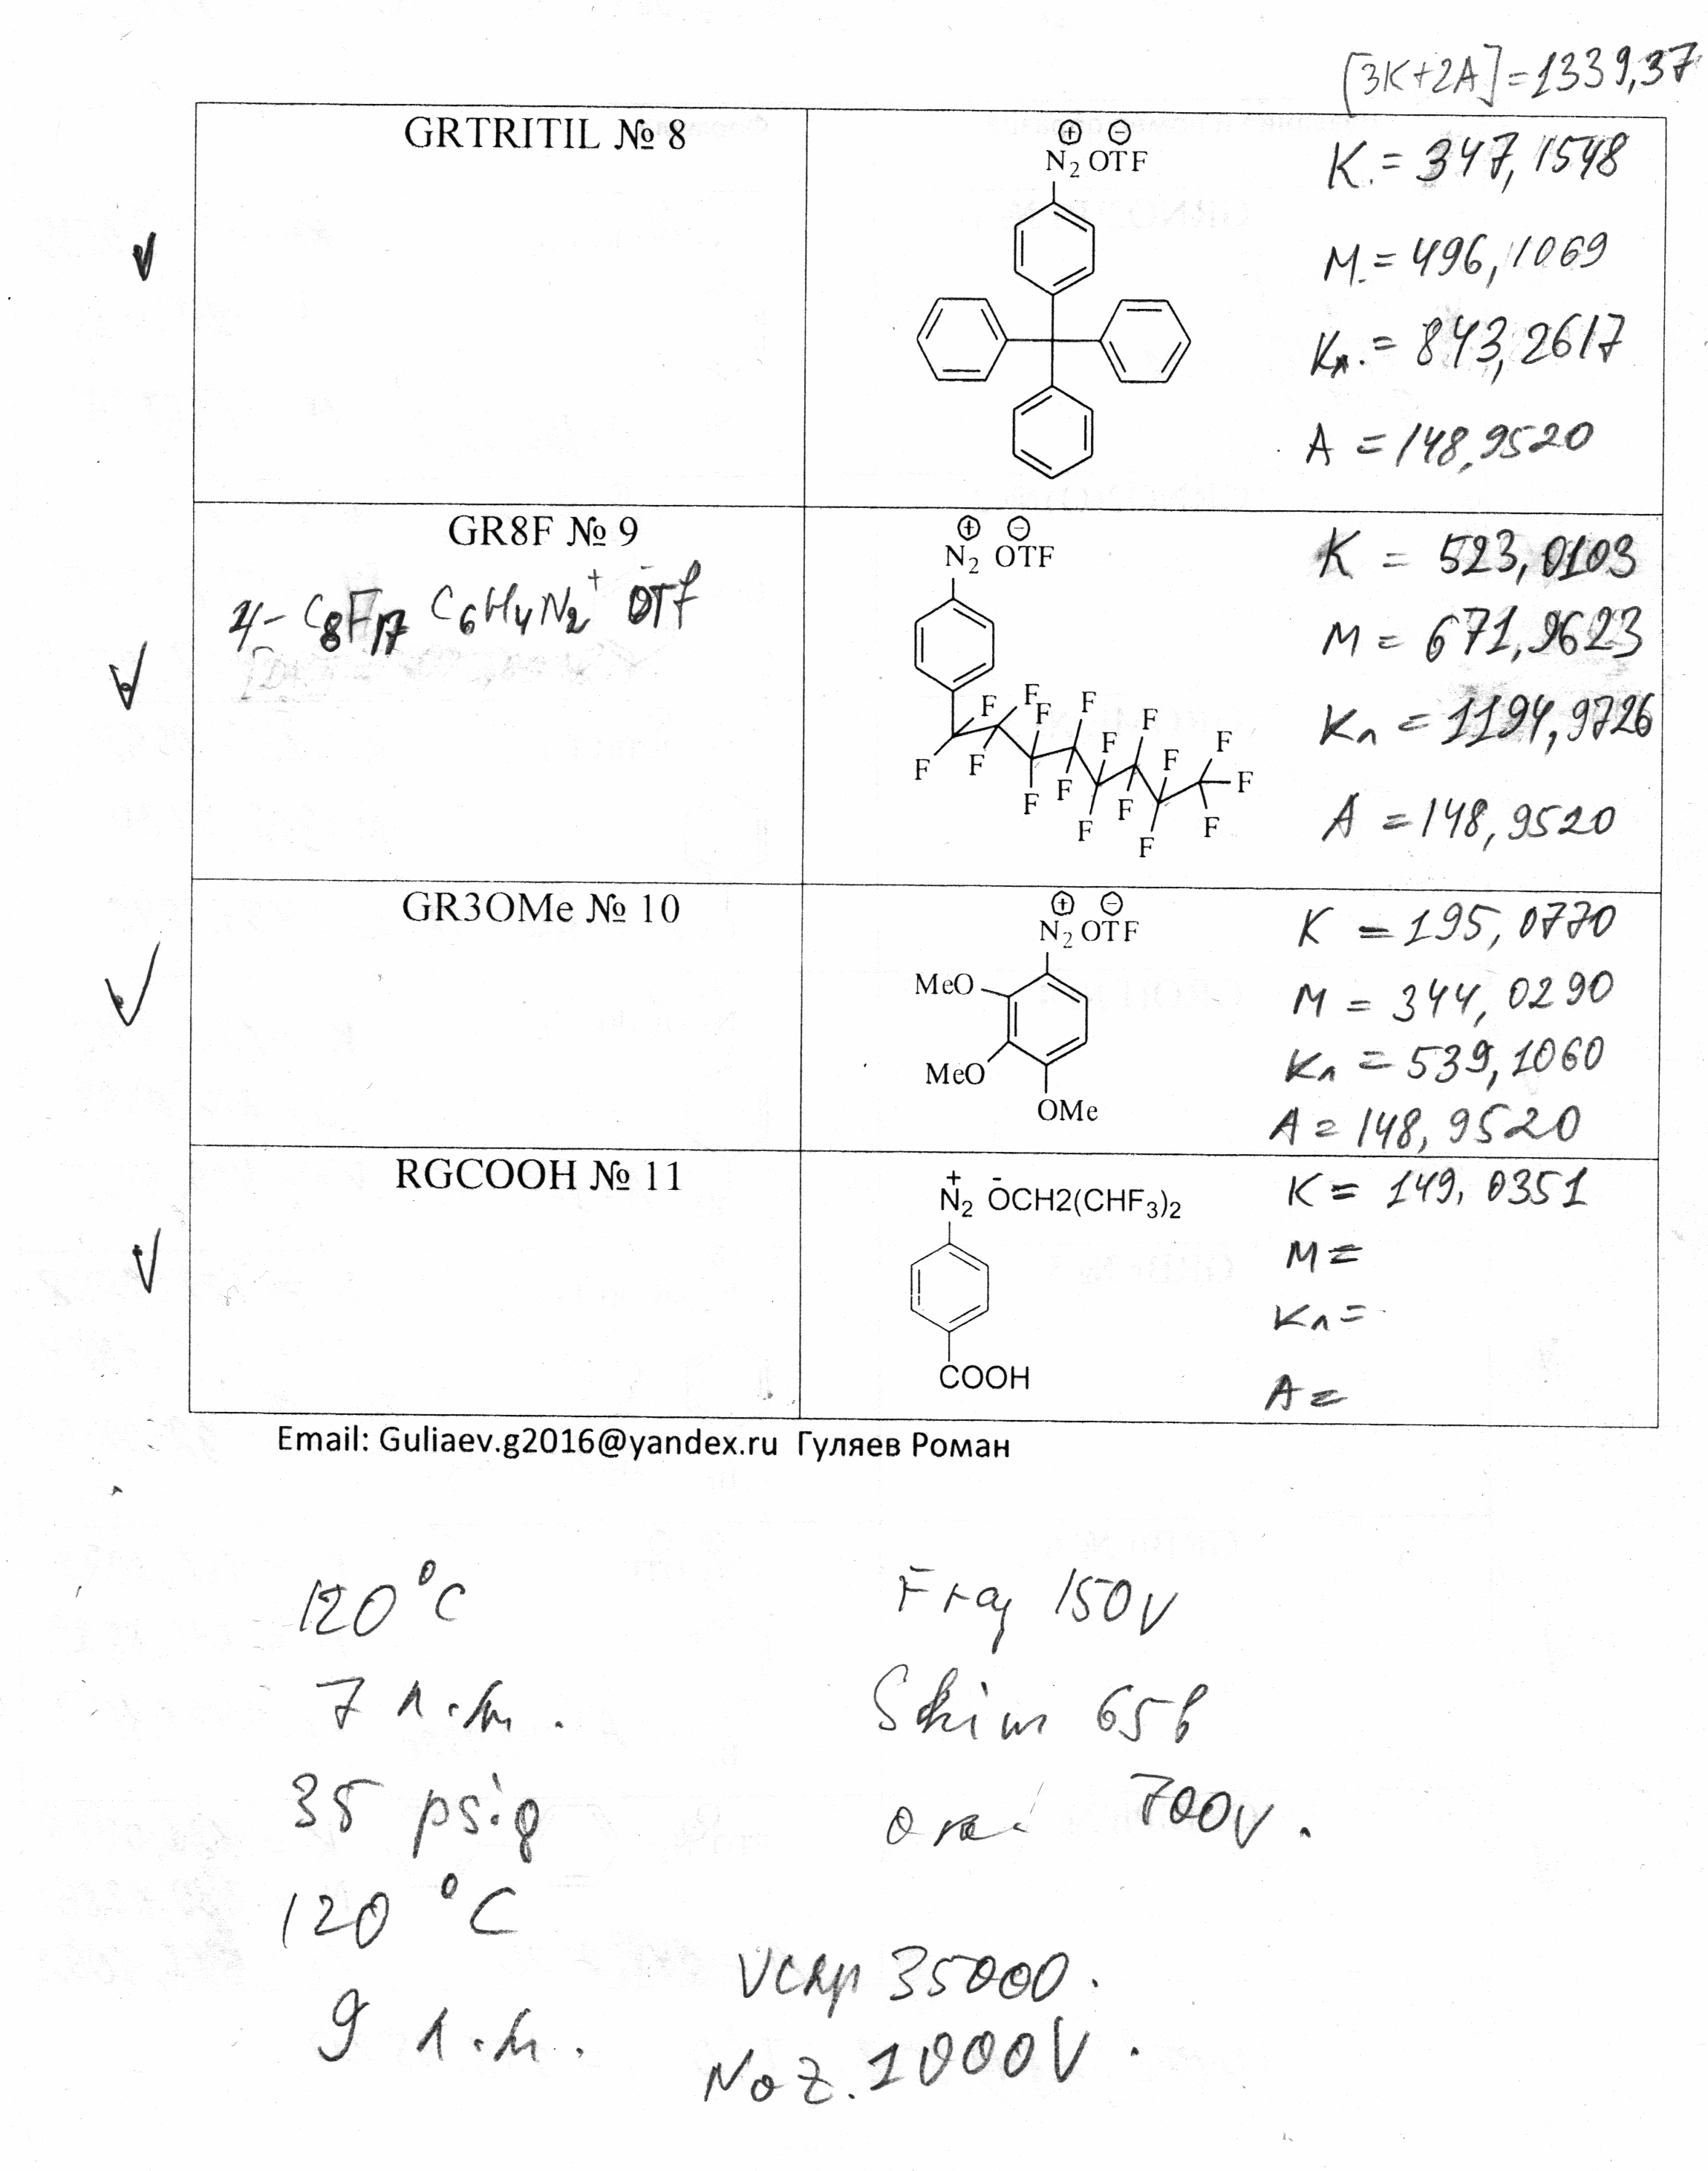 [3K+2A]=1339,37
GRTRITIL № 8
N₂ OTF
K = 347,1548
M = 496,1069
Kл = 843,2617
A = 148,9520
GR8F № 9
4- C₈F₁₇ C₆H₄N₂⁺ OTf⁻
N₂ OTF
F F F F F F F F F F F F F F F F F
K = 523,0103
M = 671,9623
Kл = 1194,9726
A = 148,9520
GR3OMe № 10
N₂ OTF
MeO
MeO
OMe
K = 195,0770
M = 344,0290
Kл = 539,1060
A = 148,9520
RGCOOH № 11
N₂⁺ ⁻OCH2(CHF₃)₂
COOH
K = 149,0351
M =
Kл =
A =
Email: Guliaev.g2016@yandex.ru Гуляев Роман
120 °C
Frag 150V
7 л.м.
Skim 65в
35 psig
700V.
120 °C
Vcap 35000.
9 л.м.
Noz. 1000V.